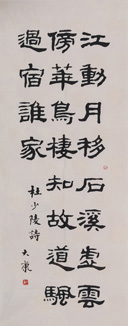 江動月移石溪虛雲
傍華鳥棲知故道颿
過宿誰家
杜少陵詩